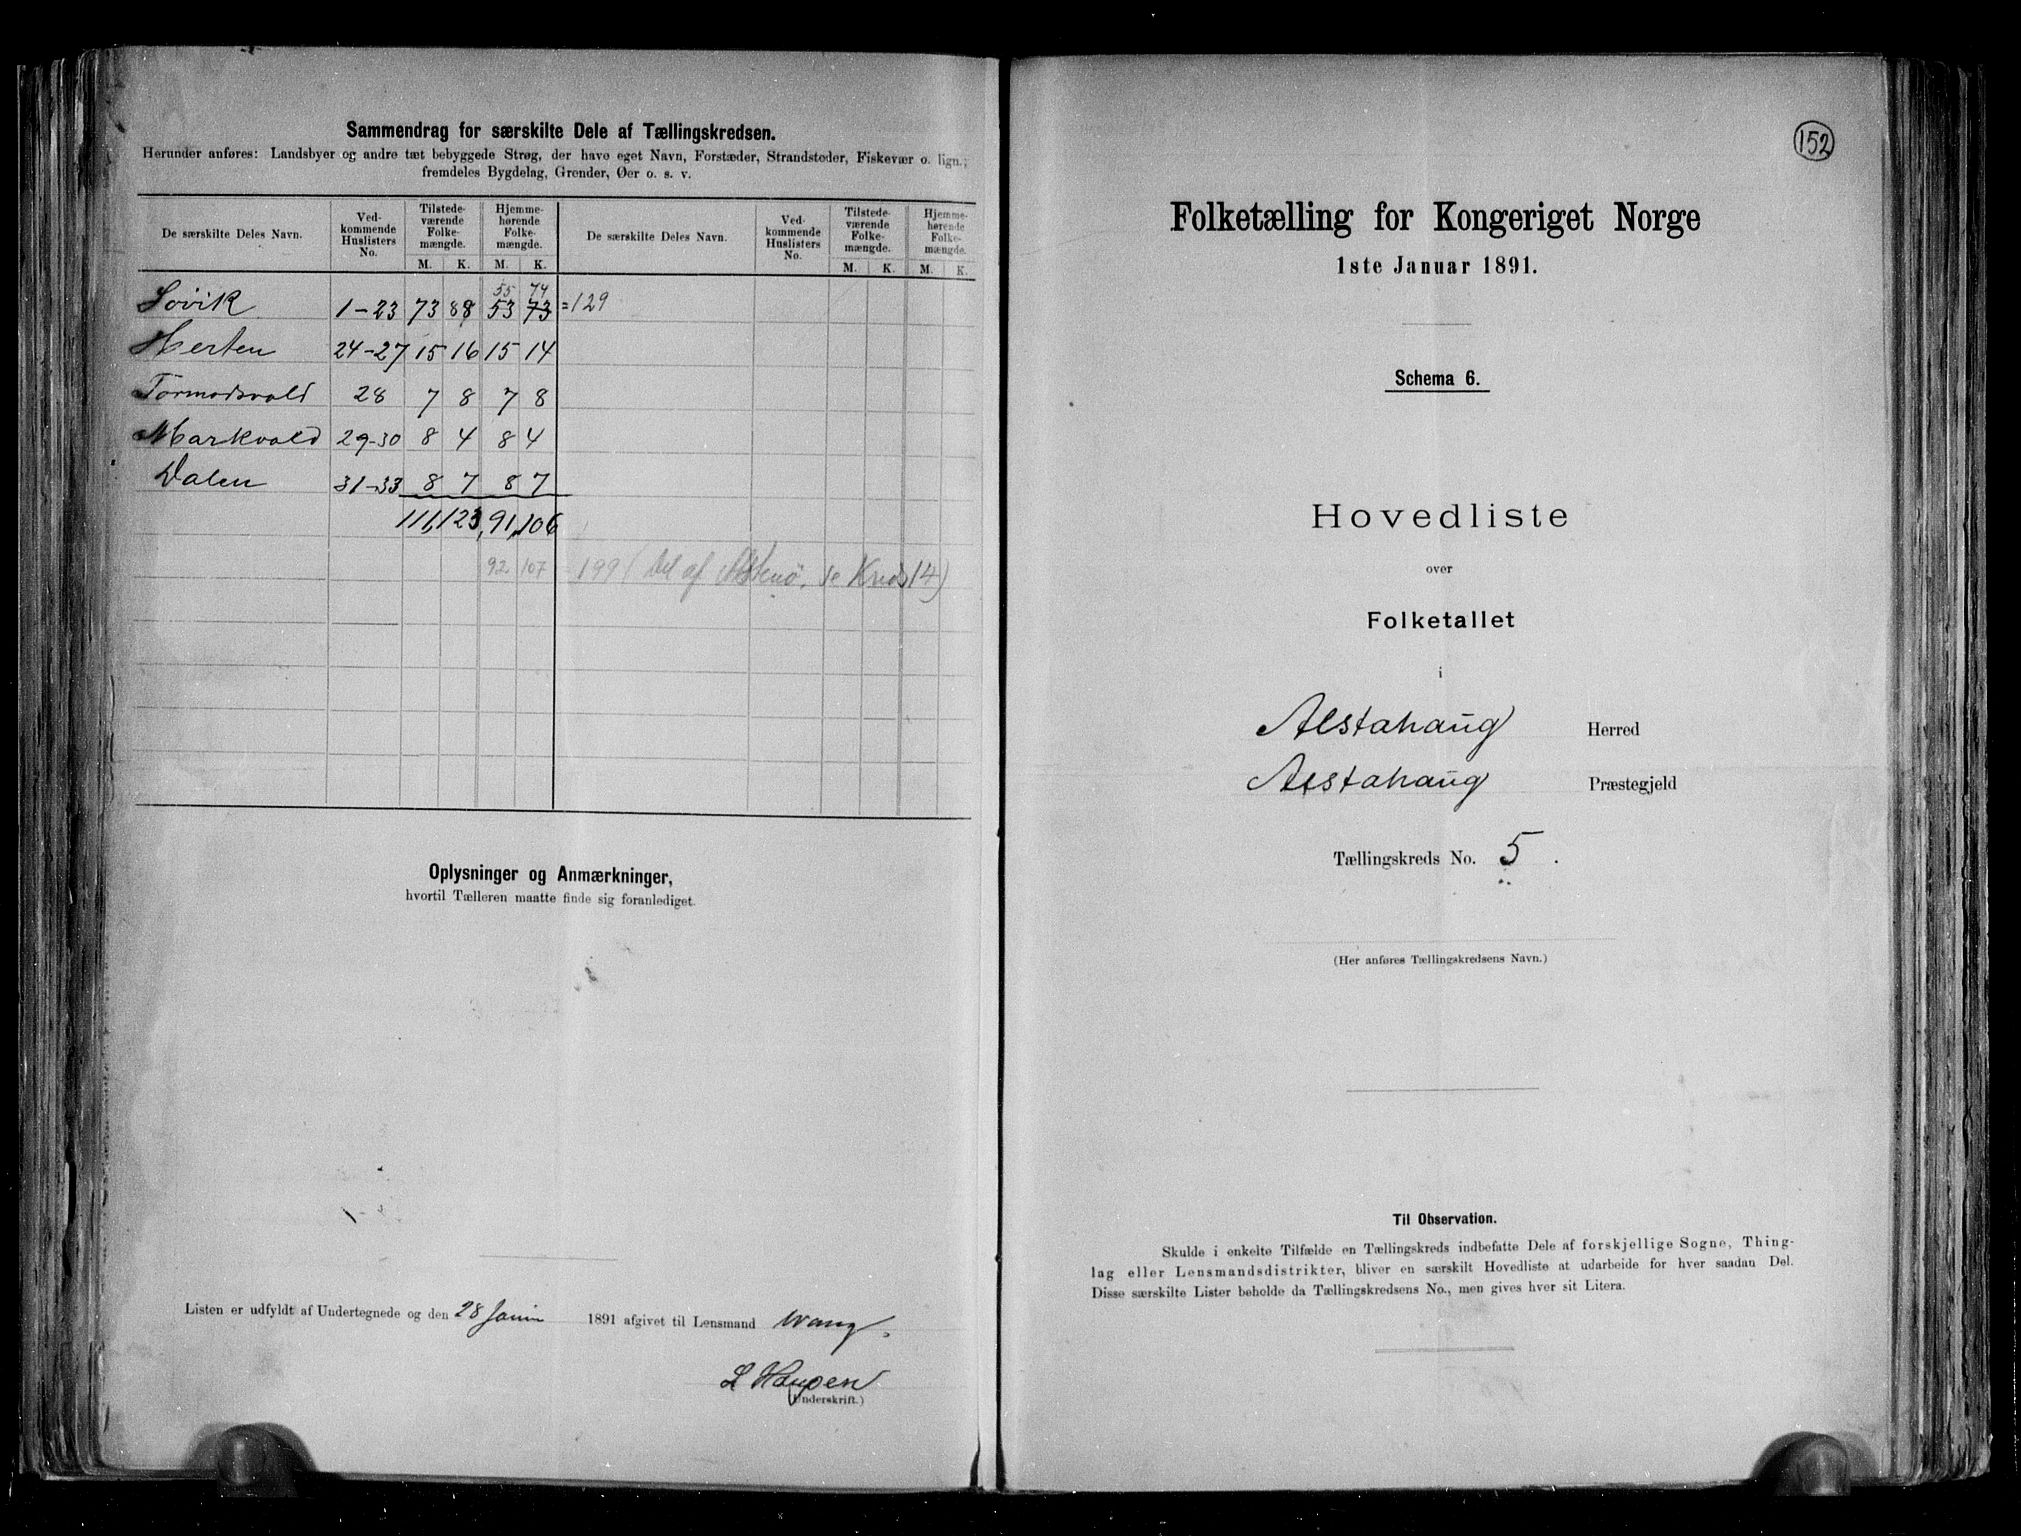 Sammendrag for særskilte Dele af Tællingskredsen.
Herunder anføres: Landsbyer og andre tæt bebyggede Strøg, der have eget Navn, Forstæder, Strandsteder, Fiskevær o. lign.;
fremdeles Bygdelag, Grender, Øer o. s. v.
De særskilte Deles Navn. Ved-kommende Huslisters No. Tilstede-værende Folke-mængde. Hjemme-hørende Folke-mængde. De særskilte Deles Navn. Ved-kommende Huslisters No. Tilstede-værende Folke-mængde. Hjemme-hørende Folke-mængde.
M. K. M. K. M. K. M. K.
55 74
Søvik 1-23 73 88 53 73 =129
Herten 24-27 15 16 15 14
Tormodsvold 28 7 8 7 8
Markvold 29-30 8 4 8 4
Dalen 31-33 8 7 8 7
111, 123, 91, 106
92 107 = 199 (Del af Alstenø, se Kreds 14)
Oplysninger og Anmærkninger,
hvortil Tælleren maatte finde sig foranlediget.
Listen er udfyldt af Undertegnede og den 28 Janu 1891 afgivet til Lensmand Wang.
L Hansen
(Underskrift.)
152
Folketælling for Kongeriget Norge
1ste Januar 1891.
Schema 6.
Hovedliste
over
Folketallet
i
Alstahaug Herred
Alstahaug Præstegjeld
Tællingskreds No. 5.
(Her anføres Tællingskredsens Navn.)
Til Observation.
Skulde i enkelte Tilfælde en Tællingskreds indbefatte Dele af forskjellige Sogne, Thing-
lag eller Lensmandsdistrikter, bliver en særskilt Hovedliste at udarbeide for hver saadan Del.
Disse særskilte Lister beholde da Tællingskredsens No., men gives hver sit Litera.